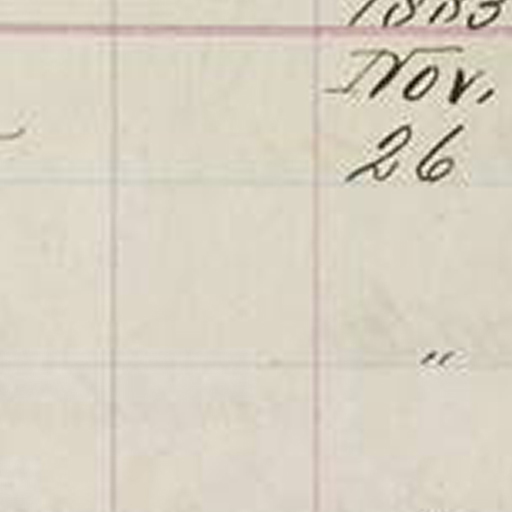 1883
Nov.
26
"